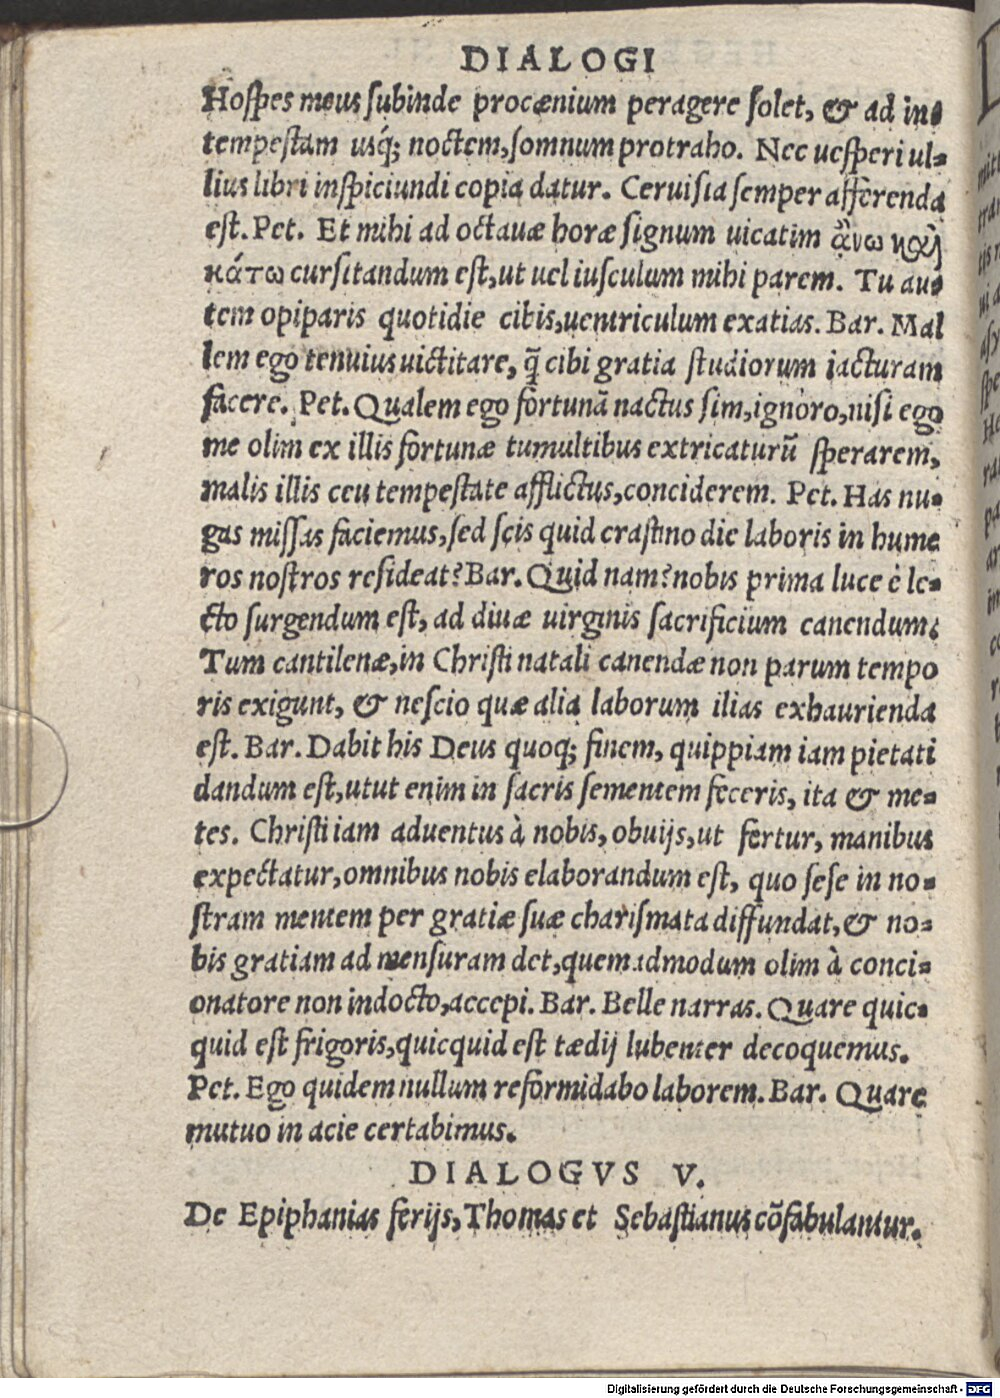 DIALOGI
Hospes meus subinde procænium peragere solet, & ad in-
tempestam usq; noctem, somnum protraho. Nec uesperi ul-
lius libri inspiciundi copia datur. Ceruisia semper afferenda
est. Pet. Et mihi ad octauæ horæ signum uicatim ἄνω καὶ
κάτω cursitandum est, ut uel iusculum mihi parem. Tu au-
tem opiparis quotidie cibis, uentriculum exatias. Bar. Mal
lem ego tenuius uictitare, q̃ cibi gratia studiorum iacturam
facere. Pet. Qualem ego fortunã nactus sim, ignoro, nisi ego
me olim ex illis fortunæ tumultibus extricaturũ sperarem,
malis illis ceu tempestate afflictus, conciderem. Pet. Has nu-
gas missas faciemus, sed scis quid crastino die laboris in hume
ros nostros resideat? Bar. Quid nam? nobis prima luce è le-
cto surgendum est, ad diuæ uirginis sacrificium canendum:
Tum cantilenæ, in Christi natali canendæ non parum tempo
ris exigunt, & nescio quæ alia laborum ilias exhaurienda
est. Bar. Dabit his Deus quoq; finem, quippiam iam pietati
dandum est, utut enim in sacris sementem feceris, ita & me-
tes. Christi iam aduentus à nobis, obuijs, ut fertur, manibus
expectatur, omnibus nobis elaborandum est, quo sese in no-
stram mentem per gratiæ suæ charismata diffundat, & no-
bis gratiam ad mensuram det, quemadmodum olim à conci-
onatore non indocto, accepi. Bar. Belle narras. Quare quic-
quid est frigoris, quicquid est tædij lubenter decoquemus.
Pet. Ego quidem nullum reformidabo laborem. Bar. Quare
mutuo in acie certabimus.
DIALOGVS V.
De Epiphanias ferijs, Thomas et Sebastianus cõfabulantur.
Digitalisierung gefördert durch die Deutsche Forschungsgemeinschaft - DFG